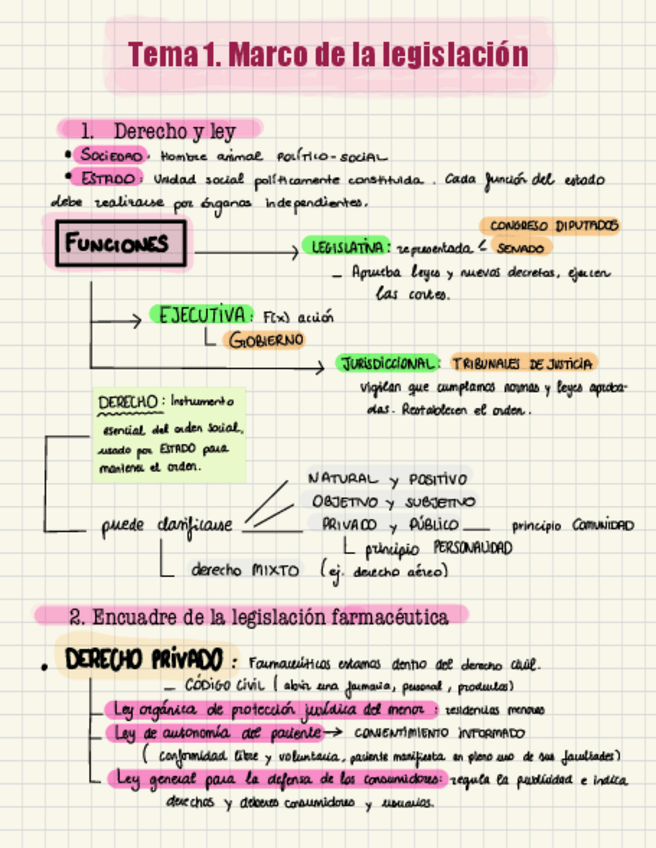 Tema 1. Marco de la legislación
1. Derecho y ley
• SOCIEDAD. Hombre animal POLÍTICO-SOCIAL
• ESTADO: Unidad social políticamente constituida. Cada función del estado
debe realizarse por órganos independientes.
FUNCIONES
CONGRESO DIPUTADOS
LEGISLATIVA: representada < SENADO
- Aprueba leyes y nuevos decretos, ejercen
las cortes.
EJECUTIVA: F(x) acción
GOBIERNO
JURISDICCIONAL: TRIBUNALES DE JUSTICIA
vigilan que cumplamos normas y leyes aproba-
das. Restablecen el orden.
DERECHO: Instrumento
esencial del orden social,
usado por ESTADO para
mantener el orden.
NATURAL y POSITIVO
OBJETIVO y SUBJETIVO
puede clasificarse PRIVADO y PÚBLICO — principio COMUNIDAD
principio PERSONALIDAD
derecho MIXTO (ej. derecho aéreo)
2. Encuadre de la legislación farmacéutica
• DERECHO PRIVADO: Farmacéuticos estamos dentro del derecho civil.
- CÓDIGO CIVIL (abrir una farmacia, personal, productos)
Ley orgánica de protección jurídica del menor: residencias menores
Ley de autonomía del paciente → CONSENTIMIENTO INFORMADO
(conformidad libre y voluntaria, paciente manifiesta en pleno uso de sus facultades)
Ley general para la defensa de los consumidores: regula la publicidad e indica
derechos y deberes consumidores y usuarios.